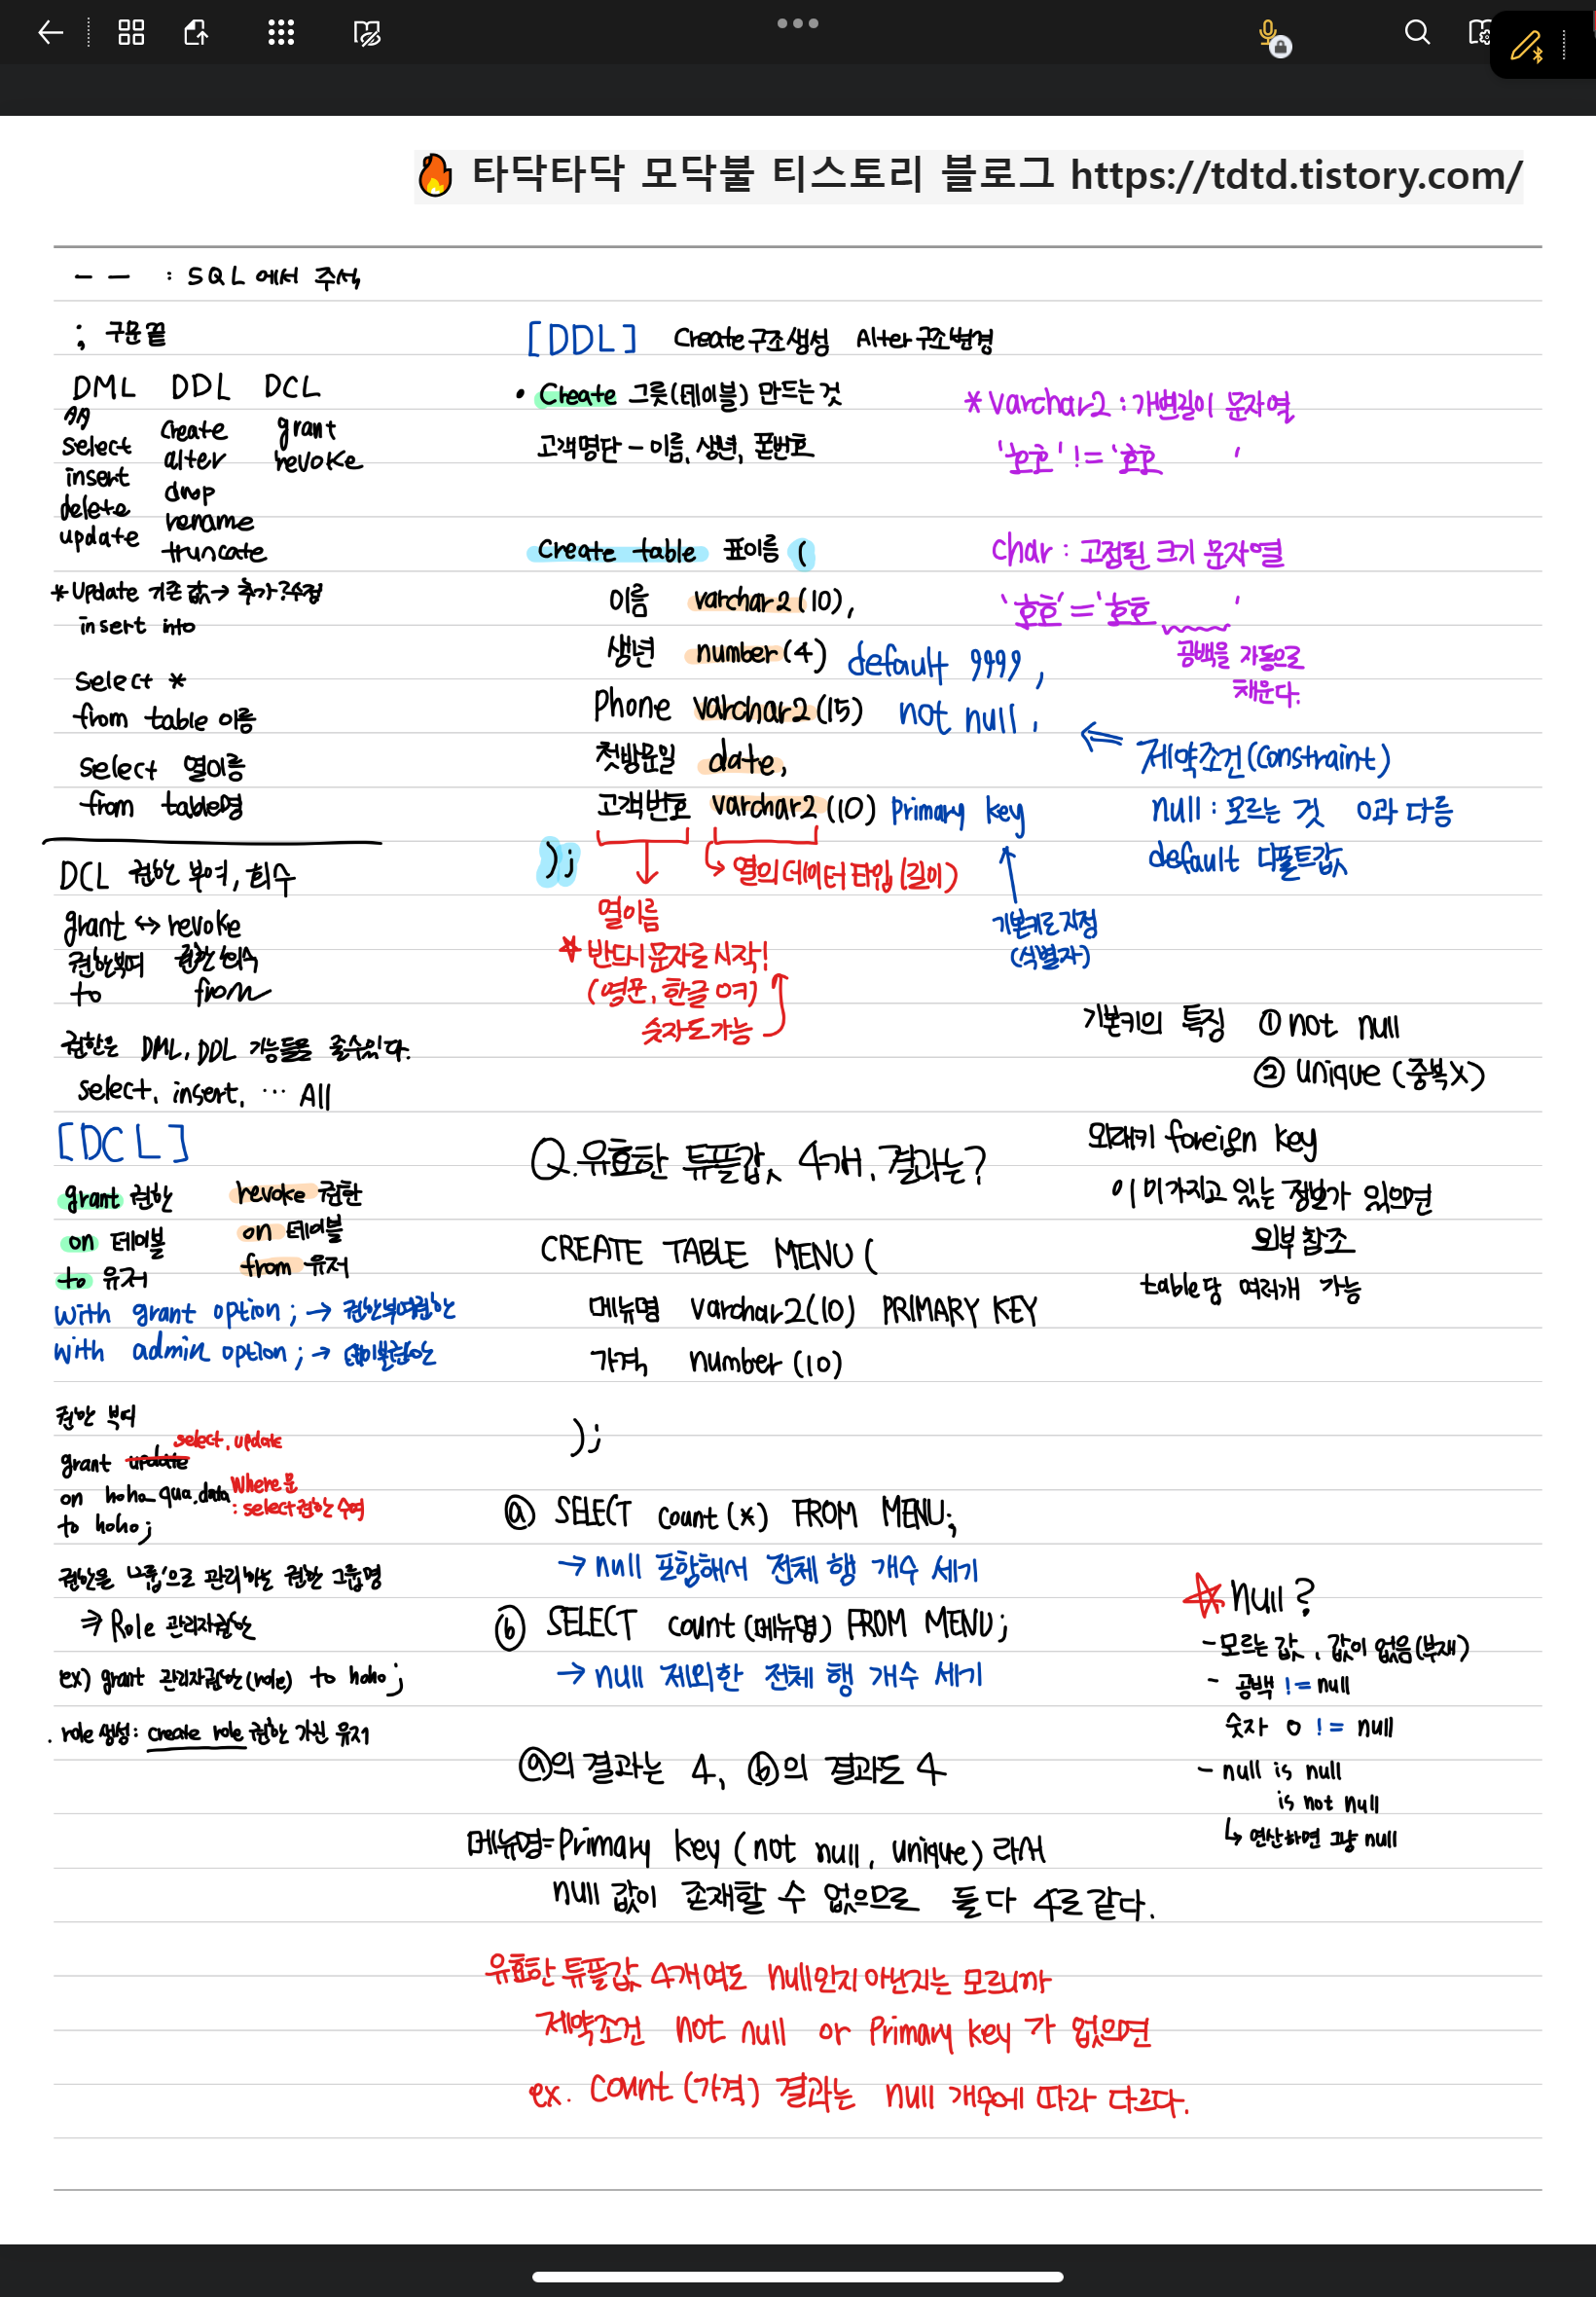 타닥타닥 모닥불 티스토리 블로그 https://tdtd.tistory.com/
-- : SQL에서 주석
; 구문 끝
DML DDL DCL
select create grant
insert alter revoke
delete drop
update rename
truncate
* Update 기존 값 → 추가? 수정
insert into
Select *
from table 이름
Select 열이름
from table명
DCL 권한 부여, 회수
grant ↔ revoke
권한부여 권한 회수
to from
권한은 DML, DDL 기능들을 줄수있다.
select, insert, … All
[DCL]
grant 권한 revoke 권한
on 테이블 on 테이블
to 유저 from 유저
with grant option ; → 권한부여권한
with admin option ; → 테이블권한
권한 부여
select, update
grant update
on hoho_qua.data
Where문
: select권한 수여
to hoho;
권한을 '그룹'으로 관리하는 권한 그룹명
⇒ Role 관리자권한
ex) grant 관리자권한(role) to hoho ;
. role 생성: create role 권한 가진 유저
[DDL] Create 구조생성 Alter 구조변경
• Create 그릇(테이블) 만드는 것
고객명단 - 이름, 생년, 폰번호
Create table 표이름 (
이름 varchar2(10),
생년 number(4) default 9999,
Phone varchar2(15) not null,
첫방문일 date,
고객번호 varchar2(10) Primary key
);
열의 데이터 타입(길이)
열이름
☆ 반드시 문자로 시작!
(영문, 한글 여키)
숫자도 가능
기본키로 지정
(식별자)
* Varchar2 : 가변길이 문자열
'호호' != '호호 '
char : 고정된 크기 문자열
'호호' = '호호 '
공백을 자동으로
채운다.
← 제약조건(Constraint)
null : 모르는 것 0과 다름
default 디폴트값
기본키의 특징 ① not null
② unique (중복X)
외래키 foreign key
이미 가지고 있는 정보가 있으면
외부 참조
table당 여러개 가능
Q. 유효한 튜플값 4개, 결과는?
CREATE TABLE MENU (
메뉴명 varchar2(10) PRIMARY KEY
가격 number(10)
);
ⓐ SELECT count(*) FROM MENU;
→ null 포함해서 전체 행 개수 세기
ⓑ SELECT count(메뉴명) FROM MENU;
→ null 제외한 전체 행 개수 세기
ⓐ의 결과는 4, ⓑ의 결과도 4
메뉴명=Primary key (not null, unique) 라서
null 값이 존재할 수 없으므로 둘 다 4로 같다.
유효한 튜플값 4개여도 null인지 아닌지는 모르니까
제약조건 not null or Primary key 가 없으면
ex. count(가격) 결과는 null 개수에 따라 다르다.
☆ null?
- 모르는 값, 값이 없음(부재)
- 공백 != null
숫자 0 != null
- null is null
is not null
↳ 연산하면 그냥 null